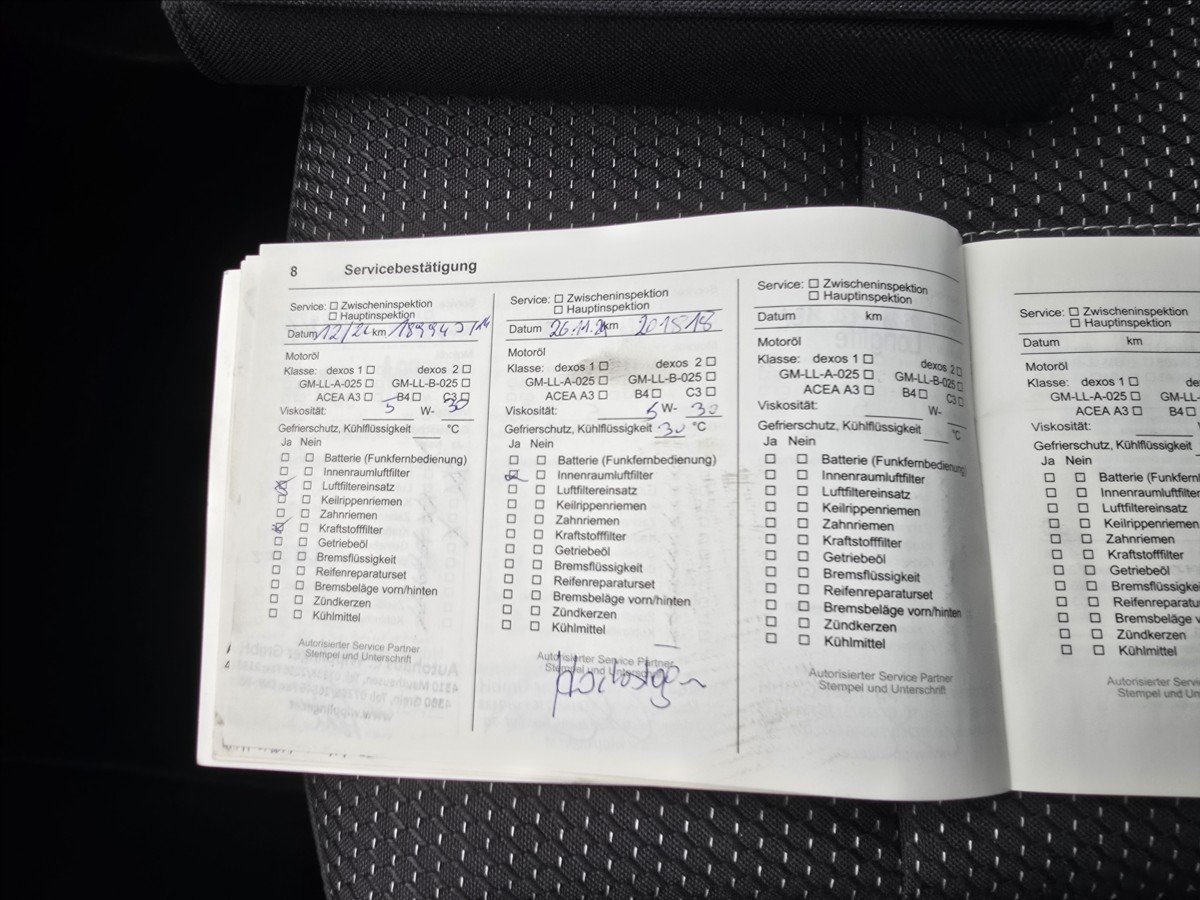 8 Servicebestätigung
Service: Zwischeninspektion
Hauptinspektion
Datum 12/22 km
Motoröl
Klasse: dexos 1 dexos 2
GM-LL-A-025 GM-LL-B-025
ACEA A3 B4 C3
Viskosität: 5 W- 30
Gefrierschutz, Kühlflüssigkeit °C
Ja Nein
Batterie (Funkfernbedienung)
Innenraumluftfilter
Luftfiltereinsatz
Keilrippenriemen
Zahnriemen
Kraftstofffilter
Getriebeöl
Bremsflüssigkeit
Reifenreparaturset
Bremsbeläge vorn/hinten
Zündkerzen
Kühlmittel
Autorisierter Service Partner
Stempel und Unterschrift
Service: Zwischeninspektion
Hauptinspektion
Datum 26.11.24 km 201518
Motoröl
Klasse: dexos 1 dexos 2
GM-LL-A-025 GM-LL-B-025
ACEA A3 B4 C3
Viskosität: 5 W- 30
Gefrierschutz, Kühlflüssigkeit 30 °C
Ja Nein
Batterie (Funkfernbedienung)
Innenraumluftfilter
Luftfiltereinsatz
Keilrippenriemen
Zahnriemen
Kraftstofffilter
Getriebeöl
Bremsflüssigkeit
Reifenreparaturset
Bremsbeläge vorn/hinten
Zündkerzen
Kühlmittel
Autorisierter Service Partner
Stempel und Unterschrift
Service: Zwischeninspektion
Hauptinspektion
Datum km
Motoröl
Klasse: dexos 1 dexos 2
GM-LL-A-025 GM-LL-B-025
ACEA A3 B4 C3
Viskosität: W-
Gefrierschutz, Kühlflüssigkeit °C
Ja Nein
Batterie (Funkfernbedienung)
Innenraumluftfilter
Luftfiltereinsatz
Keilrippenriemen
Zahnriemen
Kraftstofffilter
Getriebeöl
Bremsflüssigkeit
Reifenreparaturset
Bremsbeläge vorn/hinten
Zündkerzen
Kühlmittel
Autorisierter Service Partner
Stempel und Unterschrift
Service: Zwischeninspektion
Hauptinspektion
Datum km
Motoröl
Klasse: dexos 1
GM-LL-A-025 GM-LL-
ACEA A3 B4
Viskosität:
Gefrierschutz, Kühlflüssigkeit
Ja Nein
Batterie (Funkfernb
Innenraumluftfilter
Luftfiltereinsatz
Keilrippenriemen
Zahnriemen
Kraftstofffilter
Getriebeöl
Bremsflüssigke
Reifenreparatur
Bremsbeläge vo
Zündkerzen
Kühlmittel
Autorisierter Service P
Stempel und Unters